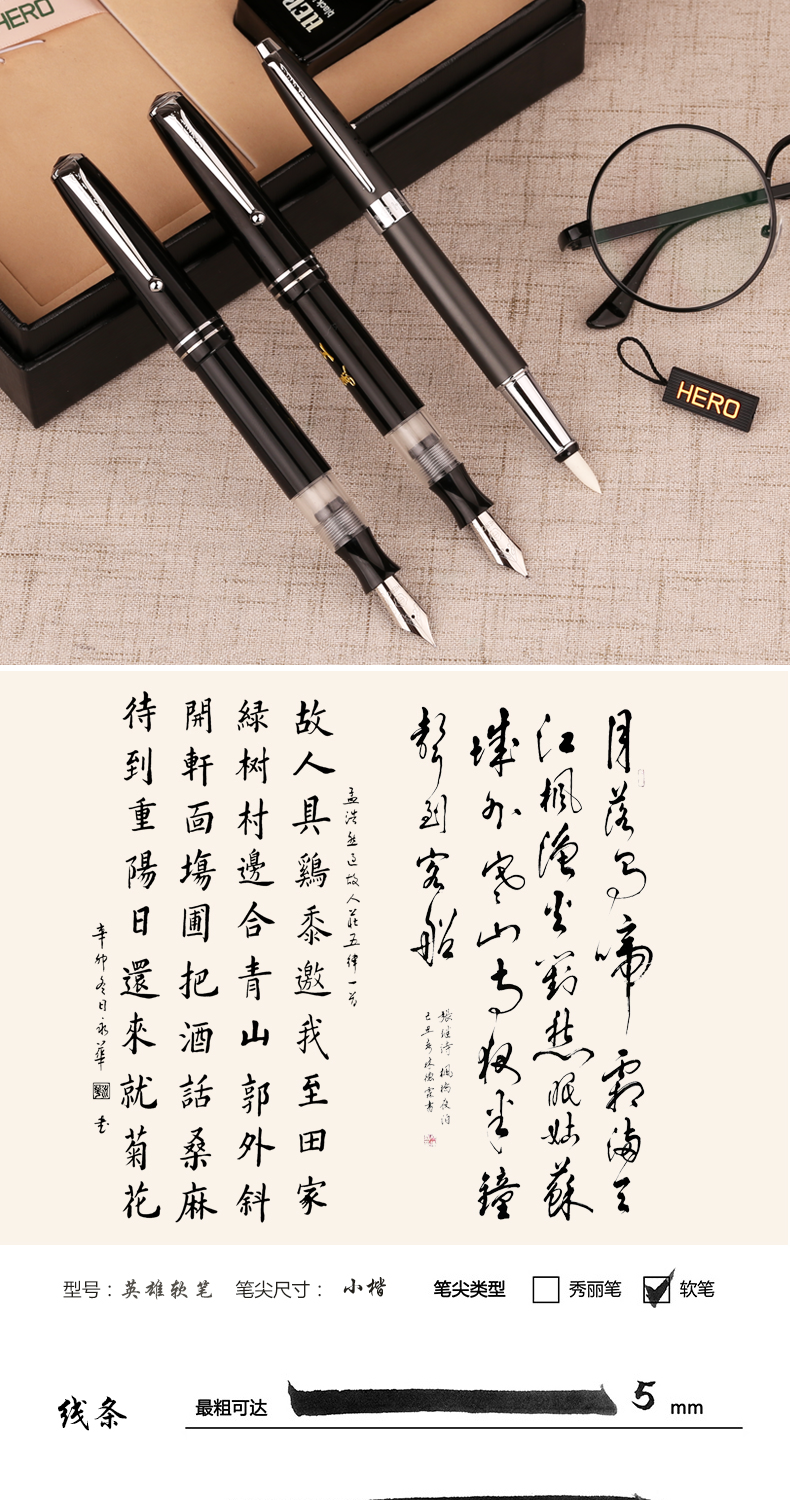 HERO
HERO
black
HERO
月落烏啼霜滿天
江楓漁火對愁眠姑蘇
城外寒山寺夜半鐘
聲到客船
張繼詩 楓橋夜泊
孟浩然過故人莊五律一首
故人具鷄黍邀我至田家
緑树村邊合青山郭外斜
開軒面塲圃把酒話桑麻
待到重陽日還來就菊花
辛卯冬日永華
书
型号：英雄软笔 笔尖尺寸： 小楷 笔尖类型 秀丽笔 软笔
线条 最粗可达 5 mm